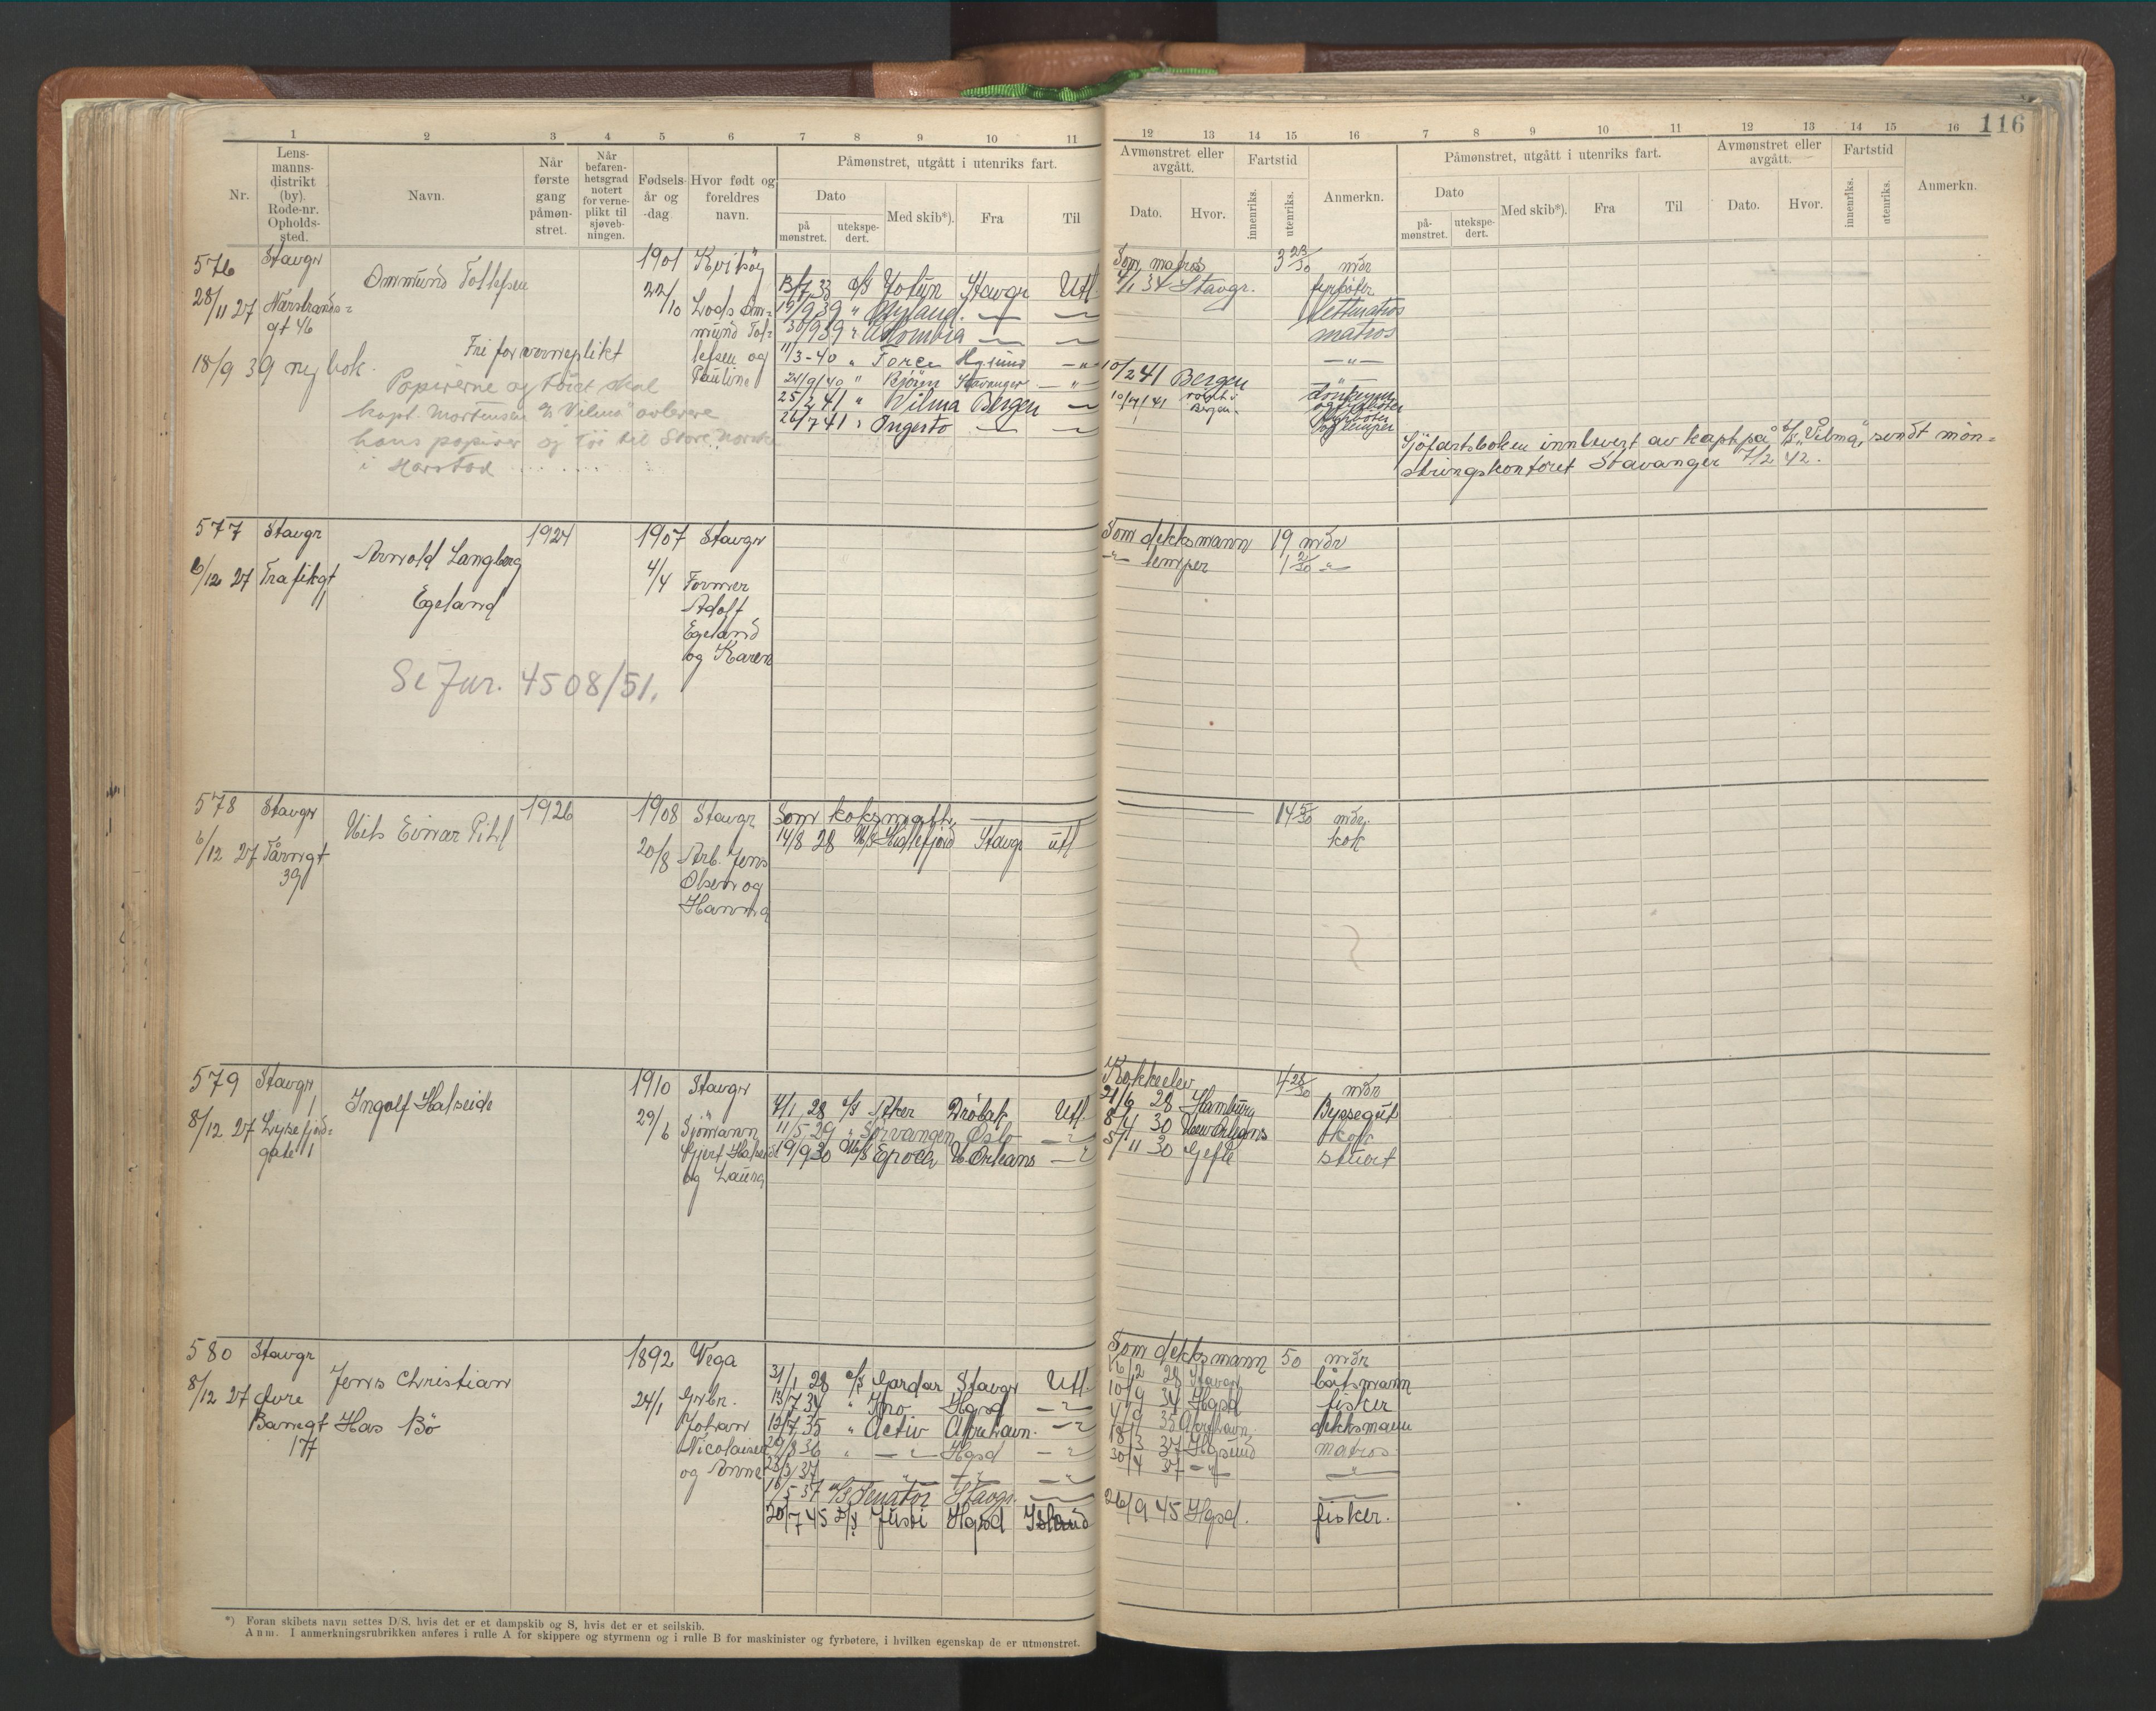 116
1 2 3 4 5 6 7 8 9 10 11 12 13 14 15 16 7 8 9 10 11 12 13 14 15 16
Nr.
Lens-
manns-
distrikt
(by).
Rode-nr.
Opholds-
sted.
Navn.
Når
første
gang
påmøn-
stret.
Når
befaren-
hetsgrad
notert
for verne-
plikt til
sjøveb-
ningen.
Fødsels-
år og
-dag.
Hvor født og
foreldres
navn.
Påmønstret, utgått i utenriks fart.
Dato
på
mønstret.
utekspe-
dert.
Med skib*).
Fra
Til
Avmønstret eller
avgått.
Dato.
Hvor.
Fartstid
innenriks.
utenriks.
Anmerkn.
Påmønstret, utgått i utenriks fart.
Dato
på-
mønstret.
utekspe-
dert.
Med skib*).
Fra
Til
Avmønstret eller
avgått.
Dato.
Hvor.
Fartstid
innenriks.
utenriks.
Anmerkn.
576 Stavgr Ommund Tollefsen 1901
28/11 27 22/10 Lods Om-
gt 46 mund Tol-
lefsen og
Pauline
Fri for verneplikt
18/9 39 ny bok.
Papirerne og tøiet skal
kapt. Mortensen D/S "Vilma" avlevere
hans papirer og tøi til Store Norske
i Harstad
13/7 33 D/S Jotun Stavgr Utl.
19/9 39 "
30/9 39 " Colombia
11/3-40 " Torcu Hgsund
24/9/40 " Björn Stavanger
25/2 41 " Vilma Bergen
26/7 41 " Ingerto
Som matros 3 23/30 mdr
4/1 34 Stavgr. fyrbøter
lettmatros
matros
10/2 41 Bergen
10/7/41 Bergen
Sjöfartsboken innlevert av kapt på D/S "Vilma", sendt mön-
stringskontoret Stavanger 7/2 42.
577 Stavgr Arnold Langberg 1924 1907 Stavgr
6/12 27 Trafikgt 11 Egeland 4/4 Former
Adolf
Egeland
og Karen
Se Jnr. 4508/51.
Som dekksmann 19 mdr
-"- lemper
578 Stavgr Nils Einar Pihl 1926 1908 Stavgr
6/12 27 Tårngt 20/8 Arb. Jens
39 Olsen og
Hanna
Som koksmath 14 5/30 mdr.
14/8 28 M/S Hidlefjord Stavgr utl kok
579 Stavgr Ingolf Halseide 1910 Stavgr
8/12 27 Lysefjord- 29/6 Sjömann
gate 11 Gjert Halseide
og Laura
4/1 28 D/S Aker Dröbak Utl.
11/5 29 " Sörvangen Oslo
19/9 30 M/S Epoca N. Orleans
Kokkeelev 4 28/30 mdr
21/6 28 Hamburg Byssegut
8/4 30 New Orleans kok
5/11 30 Gefle stuert
580 Stavgr Jens Christian 1892 Vega
8/12 27 övre Has Bö 24/1 Grbr.
Banegt Johan
177 Nicolaisen
og Anne
31/1 28 D/S Gardar Stavgr Utl.
13/7 34 " Ino Hgsd
12/7 35 " Activ Åkrehavn.
20/8 36 " Hgsd
23/3 37
18/5 37 M/S Senator Stavgr.
20/7 45 D/S Jusvi Hgsd Island
Som dekksmann 50 mdr
16/2 28 Stavgr båtsmann
10/9 34 Hgsd fisker
4/9 35 Åkrehavn. dekksmann
18/3 37 Hgsund matros
30/4 37 -"-
26/9 45 Hgsd. fisker.
*) Foran skibets navn settes D/S, hvis det er et dampskib og S, hvis det er et seilskib.
Anm. I anmerkningsrubrikken anføres i rulle A for skippere og styrmenn og i rulle B for maskinister og fyrbøtere, i hvilken egenskap de er utmønstret.